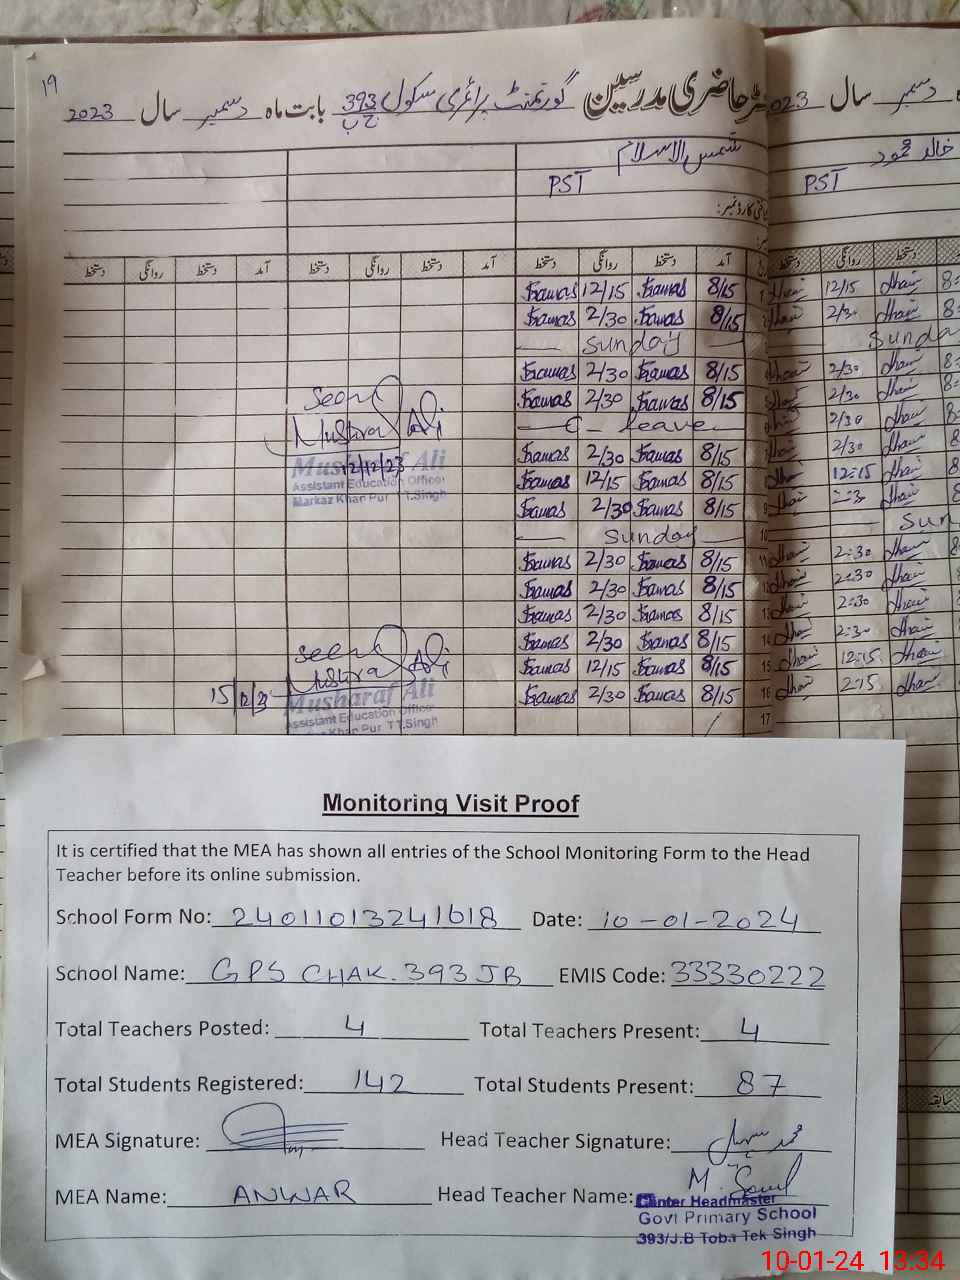 19
رجسٹر حاضری مدرسین گورنمنٹ پرائمری سکول 393 ج ب بابت ماہ دسمبر سال 2023
دسمبر سال 2023
شمس الاسلام
خالد محمود
PST
PST
آمد دستخط روانگی دستخط آمد دستخط روانگی دستخط آمد دستخط روانگی دستخط
دستخط روانگی دستخط
12/15 8/15 12/15
2/30 8/15 2/30
Sunday
2/30 8/15 2/30
2/30 8/15 2/30
C- Leave 2/30
2/30 8/15 2/30
12/15 8/15 12=15
2/30 8/15
Sunday 10
2/30 8/15 11 2=30
2/30 8/15 12 2=30
2/30 8/15 13 2=30
2/30 8/15 14 2=30
12/15 8/15 15 12=15
2/30 8/15 16 2=15
17
Seen
Musharaf Ali
12/12/23
Musharaf Ali
Assistant Education Officer
Markaz Khan Pur T.T.Singh
Seen
Musharaf Ali
15/12/23
Musharaf Ali
Assistant Education Officer
Khan Pur T T.Singh
سابقہ
Monitoring Visit Proof
It is certified that the MEA has shown all entries of the School Monitoring Form to the Head
Teacher before its online submission.
School Form No: 24011013241618 Date: 10-01-2024
School Name: GPS CHAK. 393 JB EMIS Code: 33330222
Total Teachers Posted: 4 Total Teachers Present: 4
Total Students Registered: 142 Total Students Present: 87
MEA Signature: Head Teacher Signature:
MEA Name: ANWAR Head Teacher Name:
Center Headmaster
Govt Primary School
393/J.B Toba Tek Singh
10-01-24 13:34